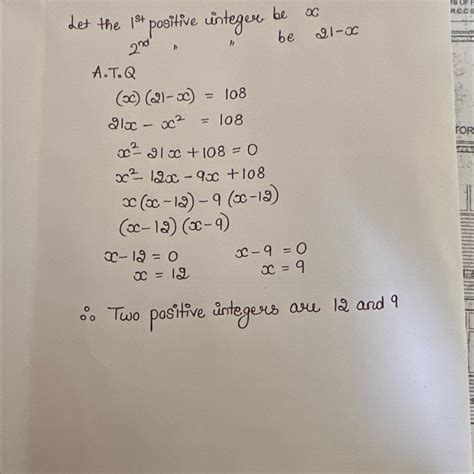 Let the 1st positive integer be x
2nd " " be 21-x
A.T.Q
(x) (21-x) = 108
21x - x² = 108
x² - 21x + 108 = 0
x² - 12x - 9x + 108
x(x-12) - 9 (x-12)
(x-12) (x-9)
x-12 = 0 x-9 = 0
x = 12 x = 9
∴ Two positive integers are 12 and 9